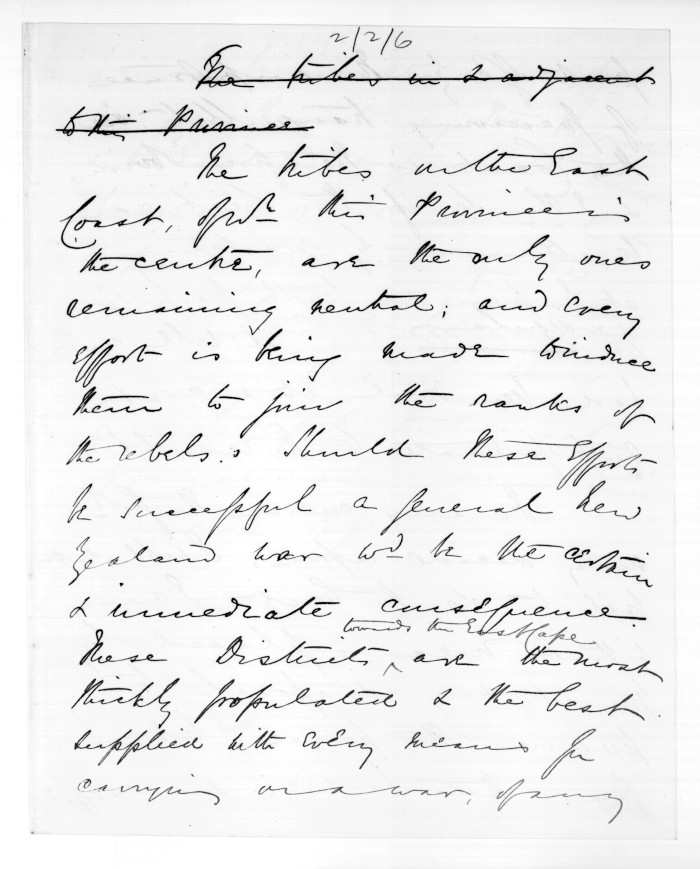 2/2/6
The tribes in & adjacent
to this Province
The tribes on the East
Coast, of wh this Province is
the centre, are the only ones
remaining neutral; and every
effort is being made to induce
them to join the ranks of
the rebels. Should these efforts
be successful a general New
Zealand war wd be the certain
& immediate consequence.
towards the East Cape
These Districts, are the most
thickly populated & the best
supplied with every means for
carrying on a war, of any